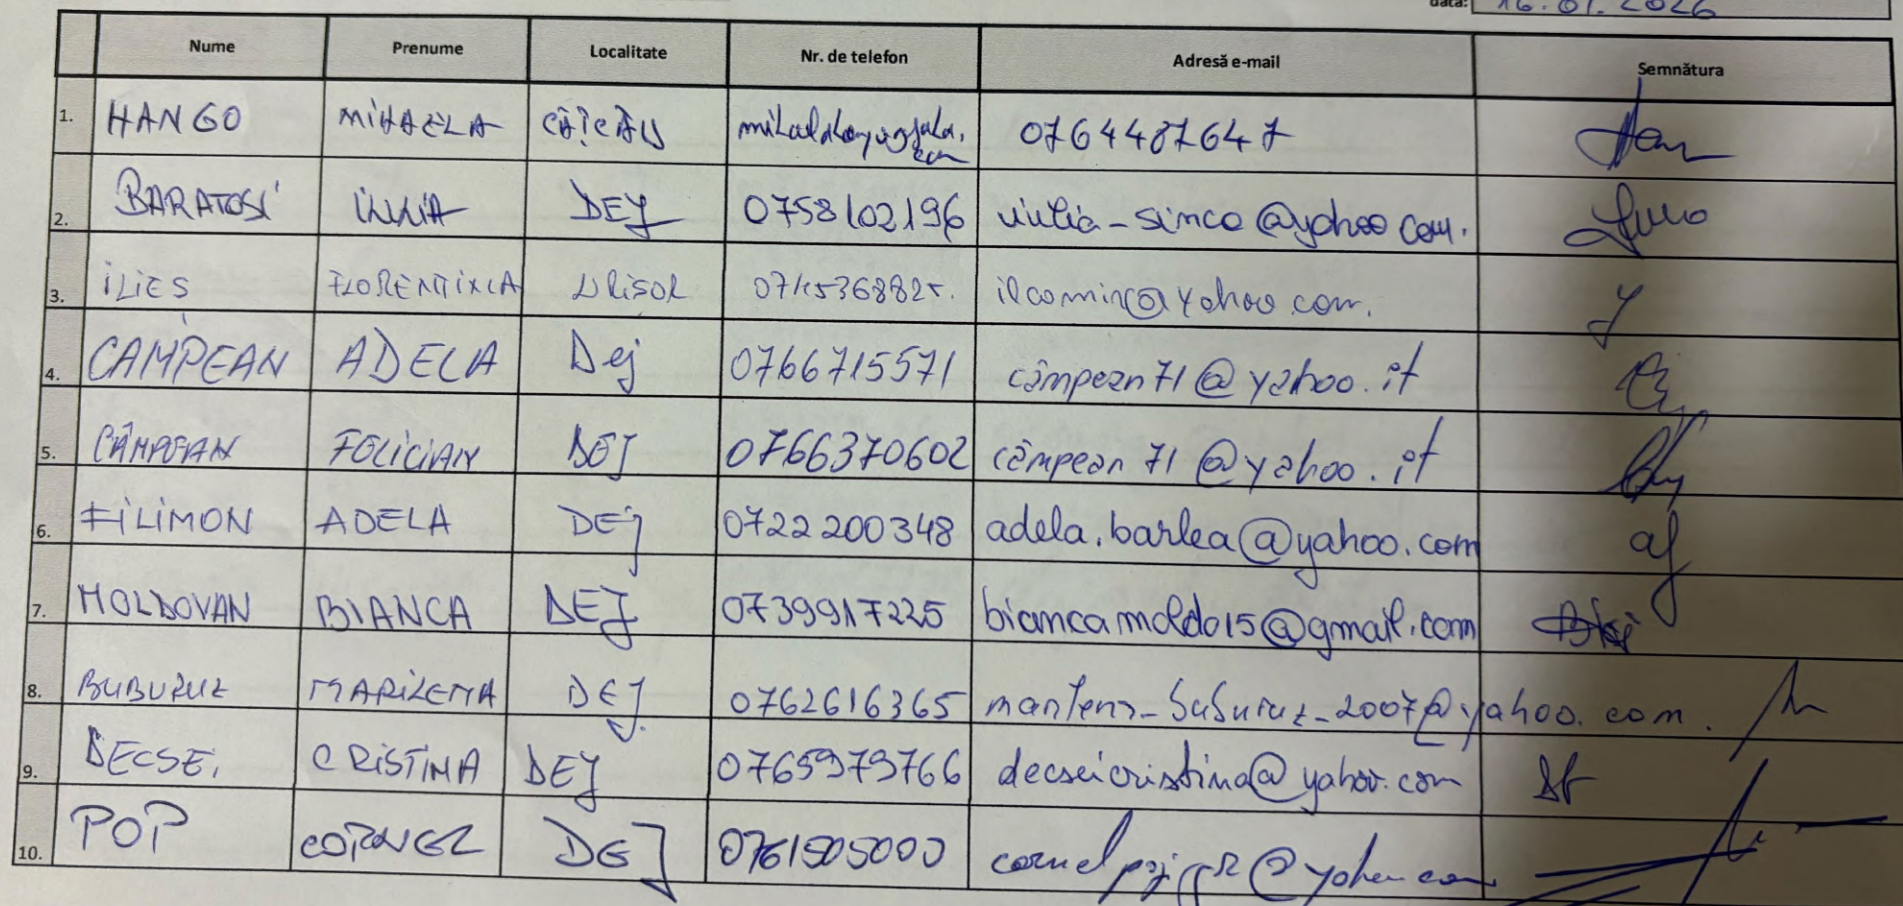 data: 16.01.2026
Nume Prenume Localitate Nr. de telefon Adresă e-mail Semnătura
1. HANGO MIHAELA CÂȚCĂU 0764487647
2. BARATOSI IULIA DEJ 0758102196 iulia-simco@yahoo.com.
3. ILIES FLORENTINA URISOR 0745368825. ilcomin@yahoo.com.
4. CAMPEAN ADELA Dej 0766715571 câmpean71@yahoo.it
5. CÂMPEAN FELICIAN DEJ 0766370602 câmpean71@yahoo.it
6. FILIMON ADELA DEJ 0722200348 adela.barlea@yahoo.com
7. MOLDOVAN BIANCA DEJ 0739917225 biancamoldo15@gmail.com
8. BUBURUZ MARILENA DEJ 0762616365
9. DECSEI CRISTINA DEJ 0765979766 decseicristina@yahoo.com
10. POP CORNEL DEJ